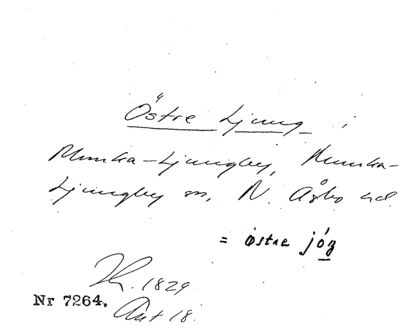 Östre Ljung i
Munka-Ljungby, Munka-
Ljungby sn, N. Åsbo hd.
= östre jög
1829
Nr 7264. Ant 18.